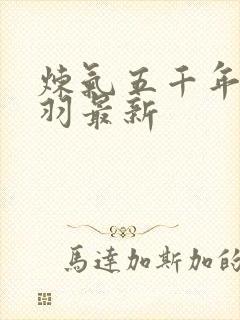 煉氣五千年
羽最新
馬達加斯加的